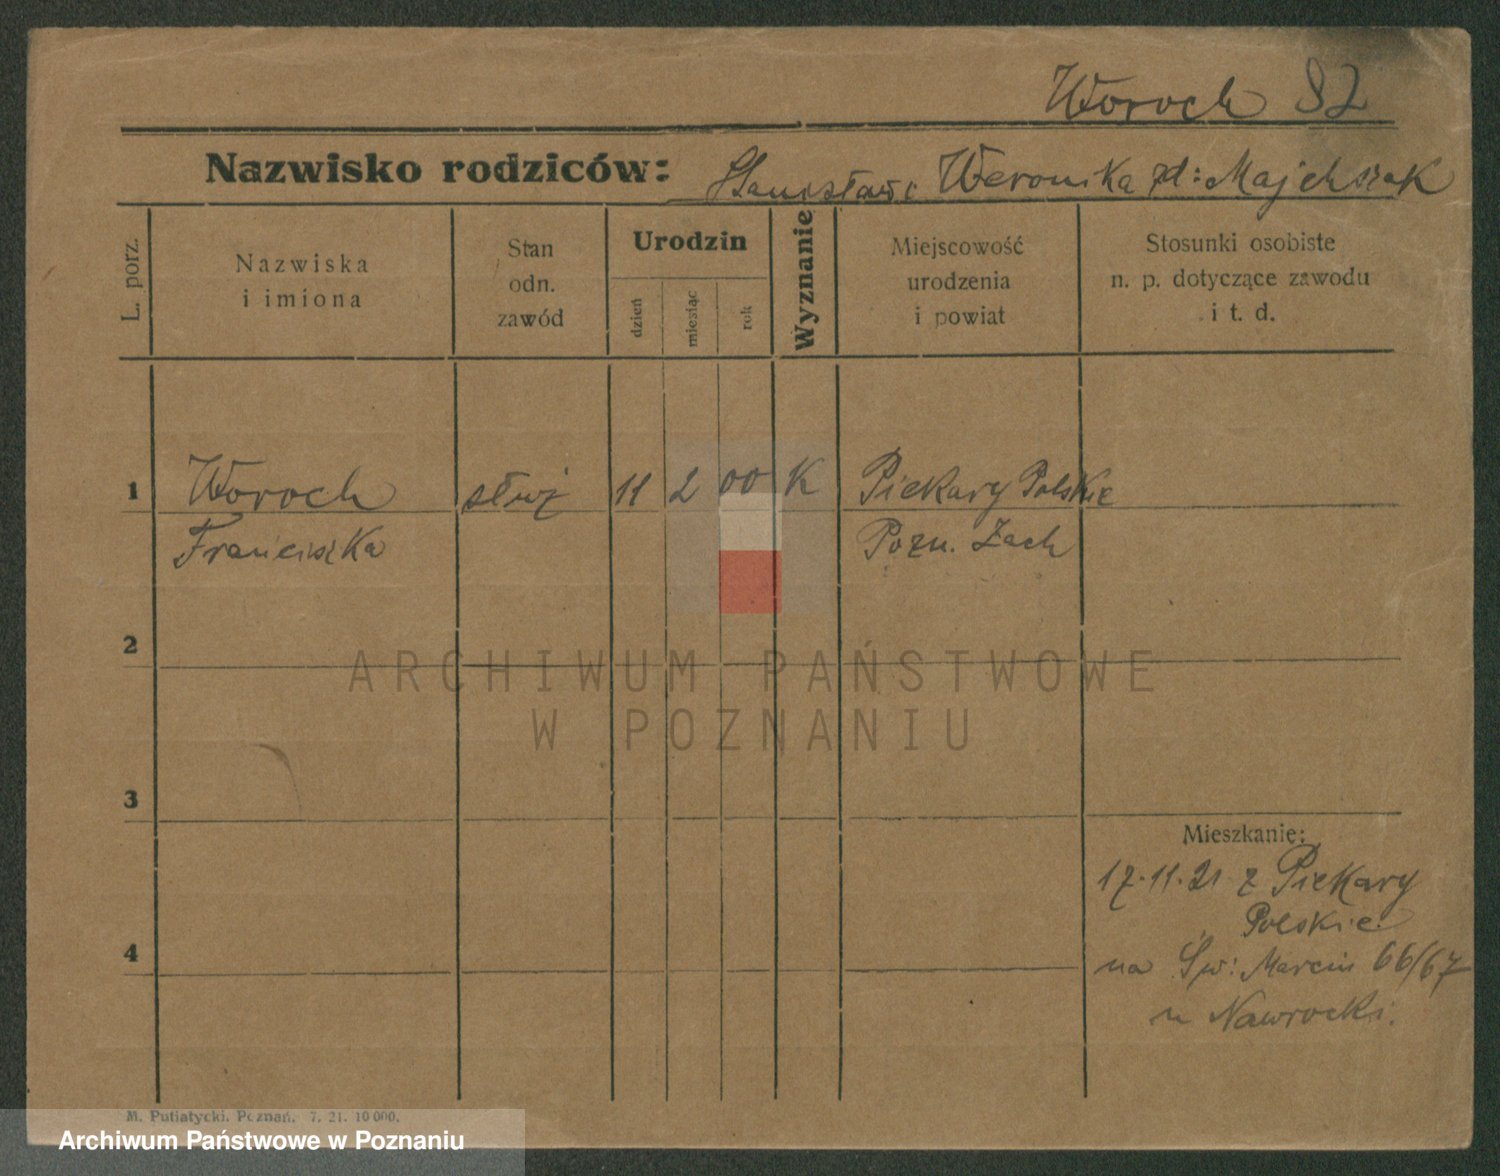 Woroch 82
Nazwisko rodziców: Stanisław i Weronika zd: Majchrzak
L. porz.
Nazwiska
i imiona
Stan
odn.
zawód
Urodzin
dzień
miesiąc
rok
Wyznanie
Miejscowość
urodzenia
i powiat
Stosunki osobiste
n. p. dotyczące zawodu
i t. d.
1 Woroch służ 11 2 00 K Piekary Polskie
Franciszka Pozn. Zach
2
ARCHIWUM PAŃSTWOWE
W POZNANIU
3
Mieszkanie:
17.11.21 z Piekary
Polskie
4
na Św: Marcin 66/67
u Nawrocki.
M. Putiatycki, Poznań. 7. 21. 10 000.
Archiwum Państwowe w Poznaniu